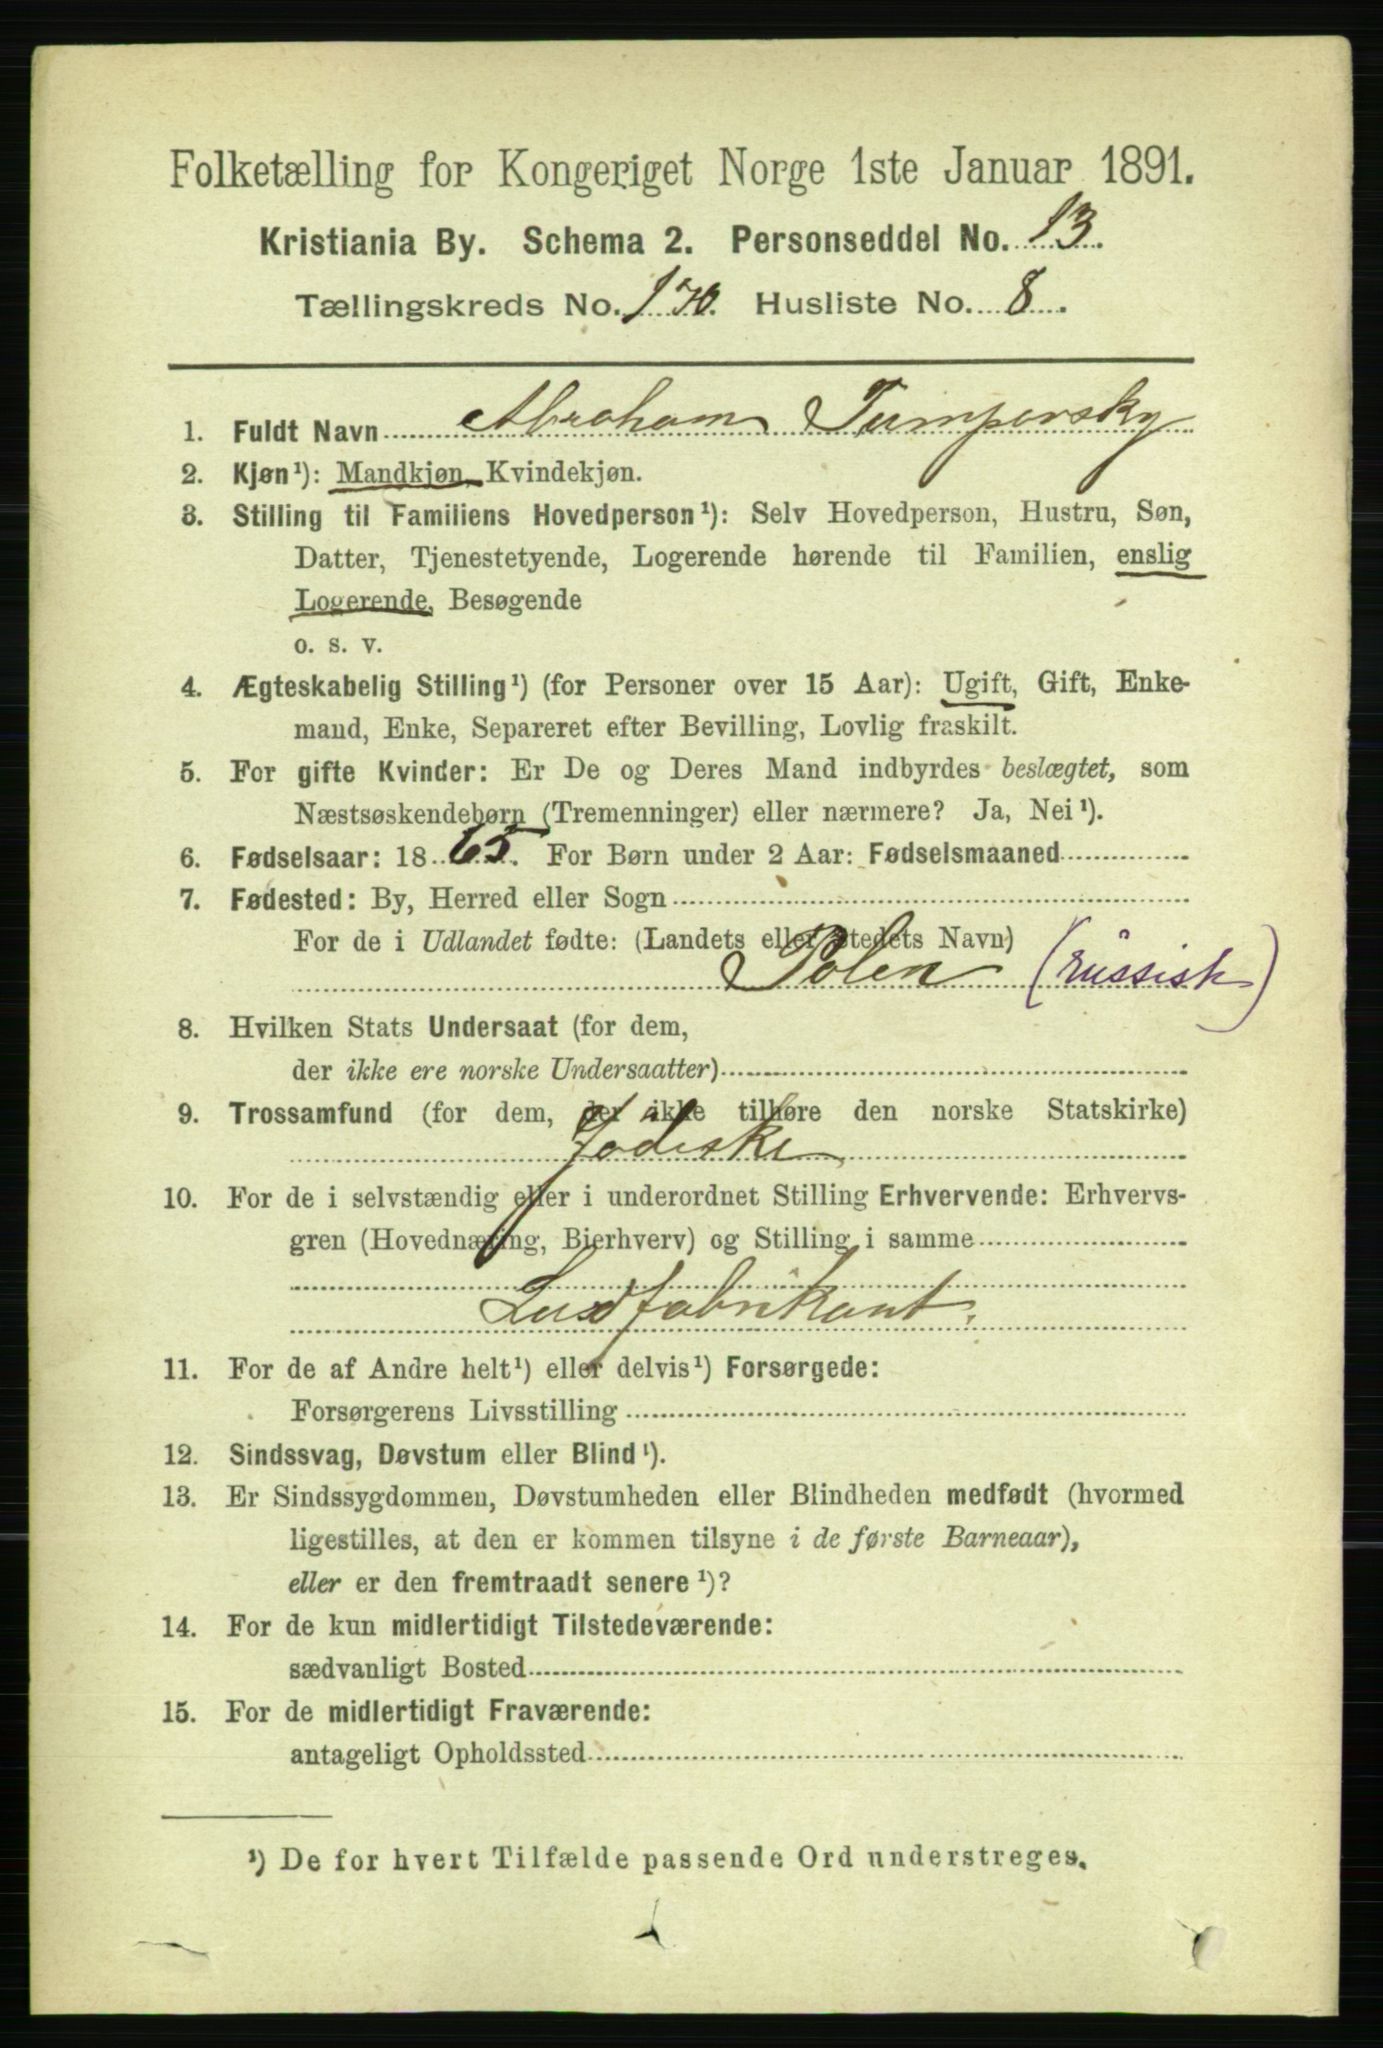 Folketælling for Kongeriget Norge 1ste Januar 1891.
Kristiania By. Schema 2. Personseddel No. 13.
Tællingskreds No. 170. Husliste No. 8.
1. Fuldt Navn Abraham Tumpovsky
2. Kjøn¹): Mandkjøn, Kvindekjøn.
3. Stilling til Familiens Hovedperson¹): Selv Hovedperson, Hustru, Søn,
Datter, Tjenestetyende, Logerende hørende til Familien, enslig
Logerende, Besøgende
o. s. v.
4. Ægteskabelig Stilling¹) (for Personer over 15 Aar): Ugift, Gift, Enke-
mand, Enke, Separeret efter Bevilling, Lovlig fraskilt.
5. For gifte Kvinder: Er De og Deres Mand indbyrdes beslægtet, som
Næstsøskendebørn (Tremenninger) eller nærmere? Ja, Nei¹).
6. Fødselsaar: 1865. For Børn under 2 Aar: Fødselsmaaned
7. Fødested: By, Herred eller Sogn
For de i Udlandet fødte: (Landets eller Stedets Navn)
Polen (russisk)
8. Hvilken Stats Undersaat (for dem,
der ikke ere norske Undersaatter)
9. Trossamfund (for dem, der ikke tilhøre den norske Statskirke)
Jødiske
10. For de i selvstændig eller i underordnet Stilling Erhvervende: Erhvervs-
gren (Hovednæring, Bierhverv) og Stilling i samme
11. For de af Andre helt¹) eller delvis¹) Forsørgede:
Forsørgerens Livsstilling
12. Sindssvag, Døvstum eller Blind¹).
13. Er Sindssygdommen, Døvstumheden eller Blindheden medfødt (hvormed
ligestilles, at den er kommen tilsyne i de første Barneaar),
eller er den fremtraadt senere¹)?
14. For de kun midlertidigt Tilstedeværende:
sædvanligt Bosted
15. For de midlertidigt Fraværende:
antageligt Opholdssted
¹) De for hvert Tilfælde passende Ord understreges.